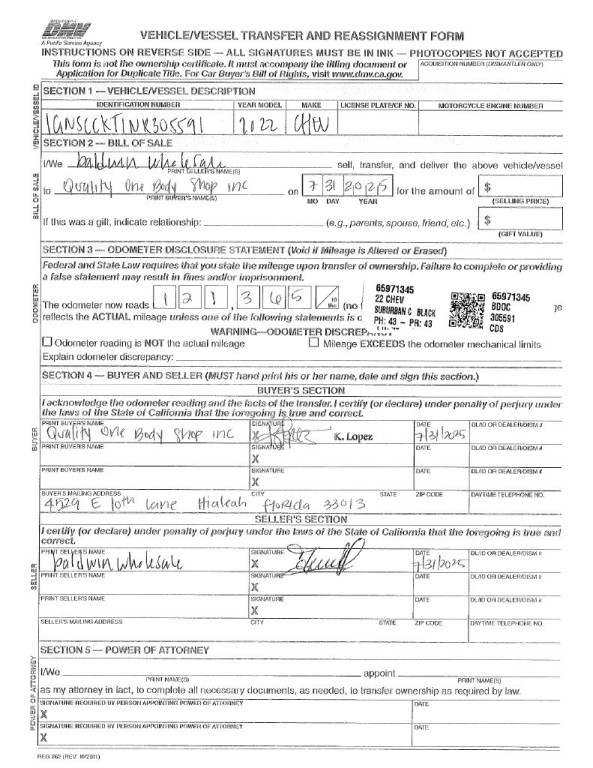 DMV
A Public Service Agency
VEHICLE/VESSEL TRANSFER AND REASSIGNMENT FORM
INSTRUCTIONS ON REVERSE SIDE — ALL SIGNATURES MUST BE IN INK — PHOTOCOPIES NOT ACCEPTED
This form is not the ownership certificate. It must accompany the titling document or
Application for Duplicate Title. For Car Buyer's Bill of Rights, visit www.dmv.ca.gov.
ACQUISITION NUMBER (DISMANTLER ONLY)
VEHICLE/VESSEL ID
SECTION 1 — VEHICLE/VESSEL DESCRIPTION
IDENTIFICATION NUMBER YEAR MODEL MAKE LICENSE PLATE/CF NO. MOTORCYCLE ENGINE NUMBER
1GNSCCKT1NR305591 2022 CHEV
BILL OF SALE
SECTION 2 — BILL OF SALE
I/We baldwin wholesale sell, transfer, and deliver the above vehicle/vessel
PRINT SELLER'S NAME(S)
to Quality One Body Shop inc on 7 31 2025 for the amount of $
PRINT BUYER'S NAME(S) MO DAY YEAR (SELLING PRICE)
If this was a gift, indicate relationship: (e.g., parents, spouse, friend, etc.) $
(GIFT VALUE)
ODOMETER
SECTION 3 — ODOMETER DISCLOSURE STATEMENT (Void if Mileage is Altered or Erased)
Federal and State Law requires that you state the mileage upon transfer of ownership. Failure to complete or providing
a false statement may result in fines and/or imprisonment.
65971345
22 CHEV
SUBURBAN C BLACK
PH: 43 - PR: 43
65971345
BDOC
305591
CDS
The odometer now reads 1 2 1, 3 6 5 (no
reflects the ACTUAL mileage unless one of the following statements is c
WARNING—ODOMETER DISCREP
Odometer reading is NOT the actual mileage Mileage EXCEEDS the odometer mechanical limits
Explain odometer discrepancy:
SECTION 4 — BUYER AND SELLER (MUST hand print his or her name, date and sign this section.)
BUYER
BUYER'S SECTION
I acknowledge the odometer reading and the facts of the transfer. I certify (or declare) under penalty of perjury under
the laws of the State of California that the foregoing is true and correct.
PRINT BUYER'S NAME SIGNATURE DATE DL/ID OR DEALER/DISM #
Quality One Body Shop inc X K. Lopez 7/31/2025
PRINT BUYER'S NAME SIGNATURE DATE DL/ID OR DEALER/DISM #
X
PRINT BUYER'S NAME SIGNATURE DATE DL/ID OR DEALER/DISM #
X
BUYER'S MAILING ADDRESS CITY STATE ZIP CODE DAYTIME TELEPHONE NO.
4529 E 10th Lane Hialeah florida 33013
SELLER
SELLER'S SECTION
I certify (or declare) under penalty of perjury under the laws of the State of California that the foregoing is true and
correct.
PRINT SELLER'S NAME SIGNATURE DATE DL/ID OR DEALER/DISM #
baldwin wholesale X 7/31/2025
PRINT SELLER'S NAME SIGNATURE DATE DL/ID OR DEALER/DISM #
X
PRINT SELLER'S NAME SIGNATURE DATE DL/ID OR DEALER/DISM #
X
SELLER'S MAILING ADDRESS CITY STATE ZIP CODE DAYTIME TELEPHONE NO.
POWER OF ATTORNEY
SECTION 5 — POWER OF ATTORNEY
I/We appoint
PRINT NAME(S) PRINT NAME(S)
as my attorney in fact, to complete all necessary documents, as needed, to transfer ownership as required by law.
SIGNATURE REQUIRED BY PERSON APPOINTING POWER OF ATTORNEY DATE
X
SIGNATURE REQUIRED BY PERSON APPOINTING POWER OF ATTORNEY DATE
X
REG 262 (REV. 10/2011)